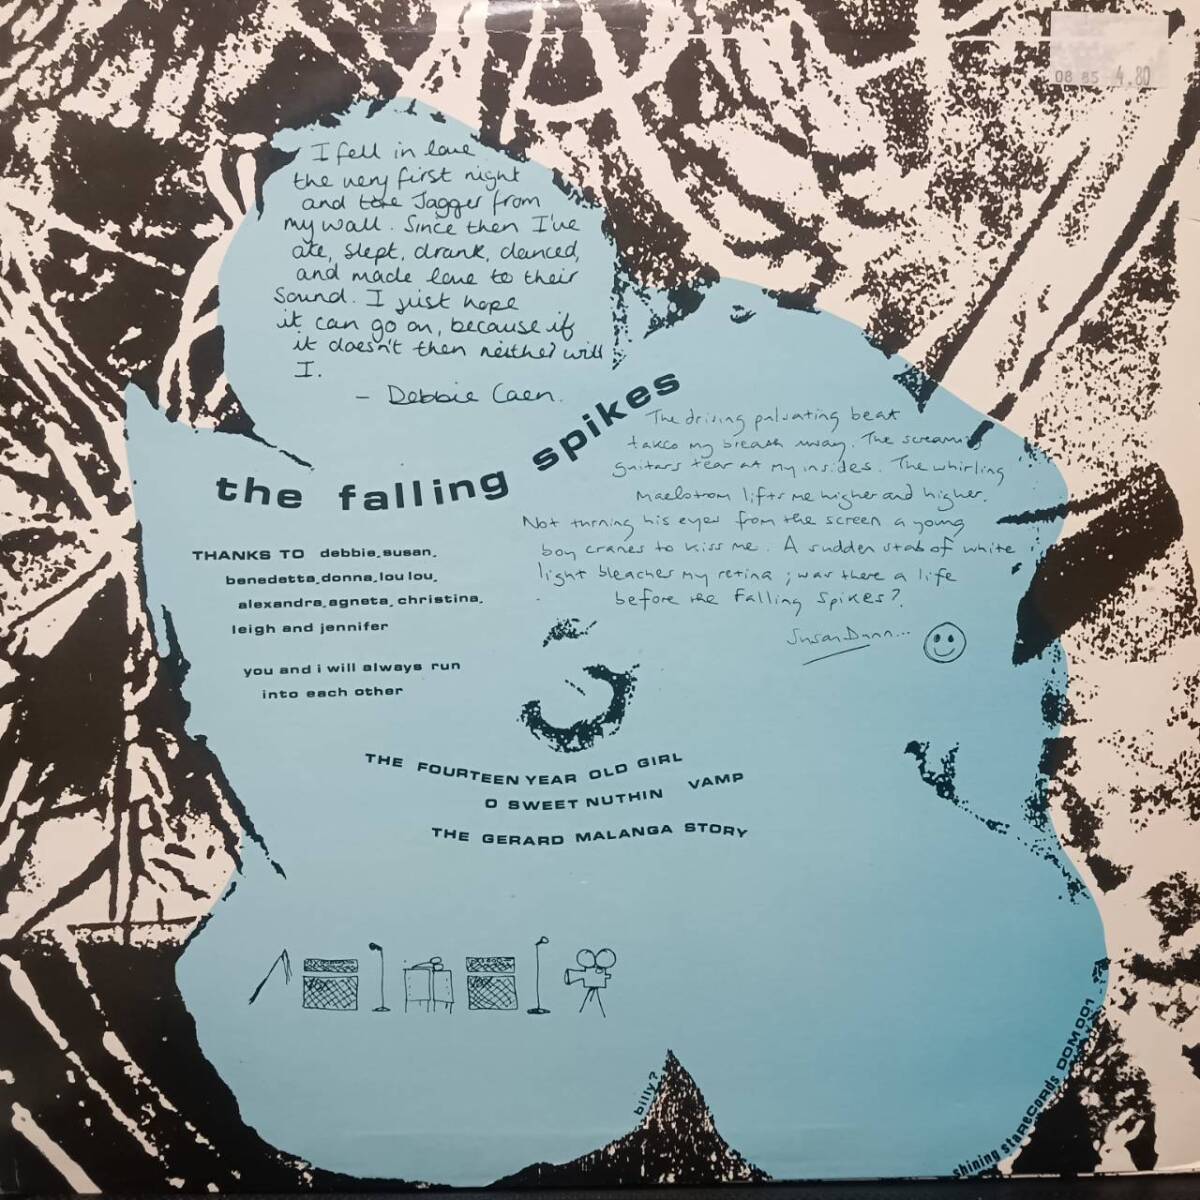 08 85 4.80
I fell in love
the very first night
and tore Jagger from
my wall. Since then I've
ate, slept, drank, danced,
and made love to their
Sound. I just hope
it can go on, because if
it doesn't then neither will
I.
– Debbie Caen.
the falling spikes
The driving pulsating beat
takes my breath away. The screaming
guitars tear at my insides. The whirling
maelstrom lifts me higher and higher.
Not turning his eyes from the screen a young
boy cranes to kiss me. A sudden stab of white
light bleaches my retina; was there a life
before the Falling Spikes?
Susan Dunn...
THANKS TO debbie, susan,
benedetta, donna, lou lou,
alexandra, agneta, christina,
leigh and jennifer
you and i will always run
into each other
THE FOURTEEN YEAR OLD GIRL
O SWEET NUTHIN VAMP
THE GERARD MALANGA STORY
billy?
shining star records DOM 001